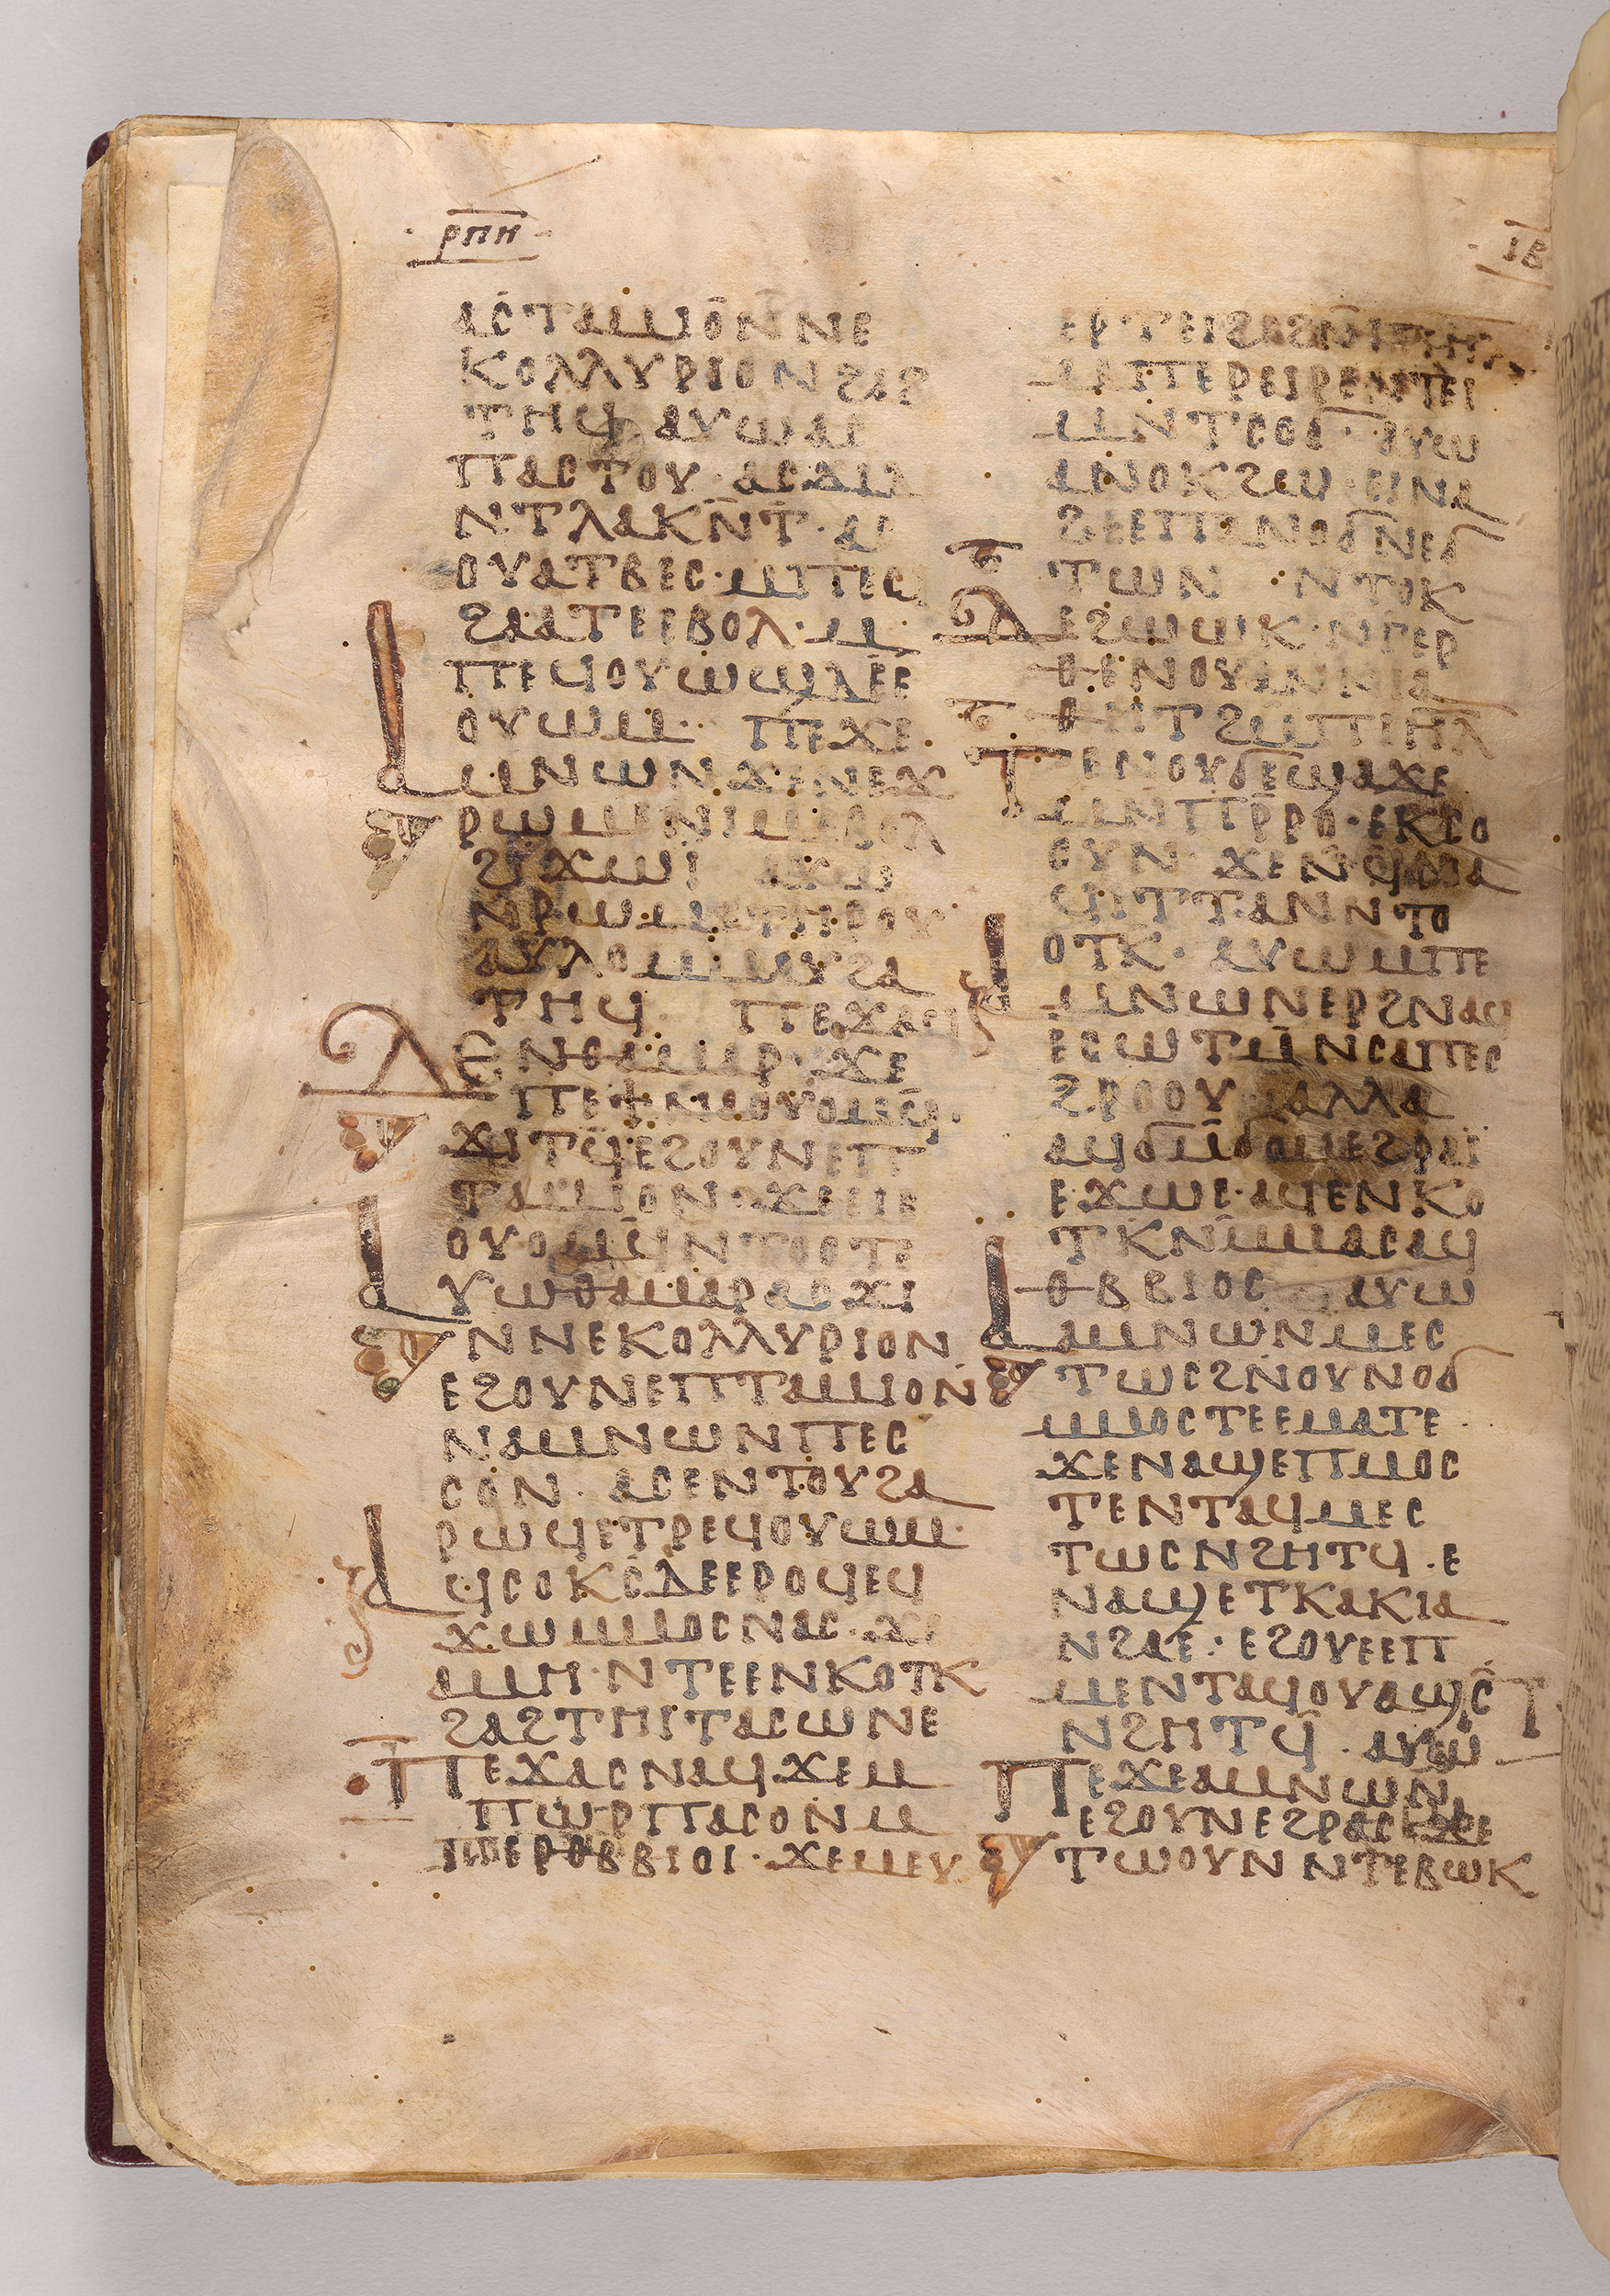 ⲣⲡⲏ
ⲓⲃ
ⲁⲥⲧⲁⲙⲓⲟⲛⲛⲉ
ⲕⲟⲗⲗⲩⲣⲓⲟⲛϩⲁϩ
ⲧⲏϥ ⲁⲩⲱⲁⲥ
ⲡⲁⲥⲧⲟⲩ· ⲁⲥϫⲓⲗ
ⲛⲧⲗⲁⲕⲛ̄ⲧ·
ⲟⲩⲁⲧⲃⲉⲥ·ⲙⲡⲉϥ
ϩⲁⲁⲧⲉⲉⲃⲟⲗ·ⲙ
ⲡⲉϥⲟⲩⲱϣⲇⲉⲉ
ⲟⲩⲱⲙ· ⲡⲉϫⲉ
ⲁⲙⲛⲱⲛϫⲉⲛⲉϫ
ⲣⲱⲙⲉⲛⲓⲙⲉⲃⲟⲗ
ϩⲓϫⲱⲓ̈
ⲛⲣⲱⲙⲉⲧⲏⲣⲟⲩ
ⲁⲩⲗⲟⲙⲙⲁⲩϩⲁ
ⲧⲏϥ ⲡⲉϫⲁϥ
ⲇⲉⲛⲑⲁⲙⲣ·ϫⲉ
ϫⲓⲧϥⲉϩⲟⲩⲛⲉⲡ
ⲧⲁⲙⲓⲟⲛ·ϫⲉⲉⲓⲉ
ⲟⲩⲟⲙϥ̄ⲛⲧⲟⲟⲧⲉ
ⲁⲩⲱⲑⲁⲙⲁⲣⲁⲥϫⲓ
ⲛⲛⲉⲕⲟⲗⲗⲩⲣⲓⲟⲛ
ⲉϩⲟⲩⲛⲉⲡⲧⲁⲙⲓⲟⲛ
ⲛⲁⲙⲛⲱⲛⲡⲉⲥ
ⲥⲟⲛ· ⲁⲥⲉⲛⲧⲟⲩϩⲁ
ⲣⲱϥⲉⲧⲣⲉϥⲟⲩⲱⲙ·
ⲁϥⲥⲟⲕⲥ̄ⲇⲉⲉⲣⲟϥⲉϥ
ϫⲱⲙⲙⲟⲥⲛⲁⲥ·ϫⲉ
ⲁⲙⲏ·ⲛⲧⲉⲉⲛⲕⲟⲧⲕ
ϩⲁϩⲧⲏⲓⲧⲁⲥⲱⲛⲉ
ⲡⲉϫⲁⲥⲛⲁϥ·ϫⲉⲙ
ⲡⲱⲣⲡⲁⲥⲟⲛⲙ
ⲡⲉⲣⲑⲃⲃⲓⲟⲓ·ϫⲉⲙⲉⲩ
ⲉⲣⲧⲉⲓϩⲉϩⲙⲡⲓⲏⲗ
ⲙⲡⲉⲣⲉⲓⲣⲉⲛⲧⲉⲓ
ⲙⲛⲧⲥⲟϭ· ⲁⲩⲱ
ⲁⲛⲟⲕϩⲱ·ⲉⲓⲛⲁ
ϩⲉⲉⲡⲁⲛⲟϭⲛⲉϭ
ⲧⲱⲛ ·ⲛⲧⲟⲕ
ⲇⲉϩⲱⲱⲕ·ⲛⲅⲉⲣ
ⲑⲉⲛⲟⲩⲁⲛⲛⲓⲁ
ⲑⲏⲧϩⲙ̄ⲡⲓⲏⲗ
ⲧⲉⲛⲟⲩϭⲉϣⲁϫⲉ
ⲙⲛⲡⲣ̄ⲣⲟ·ⲉⲕⲥⲟ
ⲟⲩⲛ·ϫⲉⲛϥⲛⲁ
ϥⲓⲧⲧ·ⲁⲛⲛⲧⲟ
ⲟⲧⲕ· ⲁⲩⲱⲙⲡⲉ
ⲁⲙⲛⲱⲛⲉⲣϩⲛⲁϥ
ⲉⲥⲱⲧⲙ̄ⲛⲥⲁⲡⲉⲥ
ϩⲣⲟⲟⲩ ⲁⲗⲗⲁ
ⲁϥϭⲙ̄ϭⲟⲙⲉϩⲣⲁⲓ̈
ⲉϫⲱⲉ·ⲁϥⲉⲛⲕⲟ
ⲧⲕⲛⲙ̄ⲙⲁⲥⲁϥ
ⲑⲃⲃⲓⲟⲥ ⲁⲩⲱ
ⲁⲁⲙⲛⲱⲛⲙⲉⲥ
ⲧⲱⲥϩⲛⲟⲩⲛⲟϭ
ⲙⲙⲟⲥⲧⲉⲉⲙⲁⲧⲉ·
ϫⲉⲛⲁϣⲉⲡⲙⲟⲥ
ⲧⲉⲛⲧⲁϥⲙⲉⲥ
ⲧⲱⲥⲛϩⲏⲧϥ·ⲉ
ⲛⲁϣⲉⲧⲕⲁⲕⲓⲁ
ⲛϩⲁⲉ· ⲉϩⲟⲩⲉⲉⲡ
ⲙⲉⲛⲧⲁϥⲟⲩⲁϣⲥ̄
ⲛϩⲏⲧϥ̄ ·ⲁⲩⲱ
ⲡⲉϫⲉⲁⲙⲛⲱⲛ
ⲉϩⲟⲩⲛⲉϩⲣⲁⲥϫⲉ
ⲧⲱⲟⲩⲛ ⲛⲧⲉⲃⲱⲕ